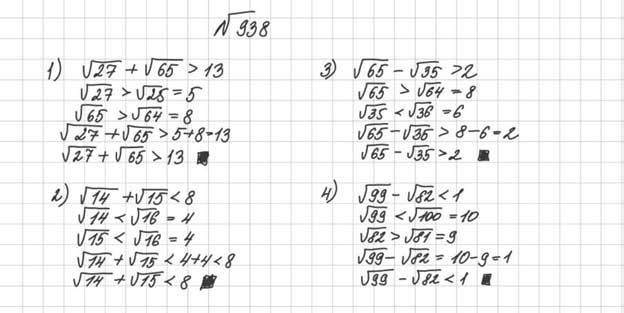 √938
1) √27 + √65 > 13
√27 > √25 = 5
√65 > √64 = 8
√27 + √65 > 5+8=13
√27 + √65 > 13
2) √14 + √15 < 8
√14 < √16 = 4
√15 < √16 = 4
√14 + √15 < 4+4<8
√14 + √15 < 8
3) √65 - √35 > 2
√65 > √64 = 8
√35 < √36 = 6
√65 - √35 > 8-6=2
√65 - √35 > 2
4) √99 - √82 < 1
√99 < √100 = 10
√82 > √81 = 9
√99 - √82 = 10-9=1
√99 - √82 < 1